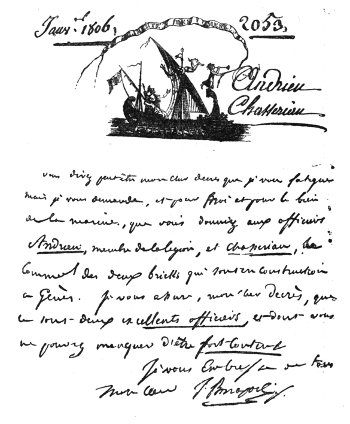 Janv. 1806, 2053,
Andrieu
Chasseriau
vous direz peut être mon cher Decrès que je vous fatigue
mais je vous demande, et pour moi et pour le bien
de la marine, que vous donniez aux officiers
Andrieu, membre de la légion, et Chasseriau, le
commt des deux bricks qui sont en construction
a Gênes. Je vous assure, mon cher Decrès, que
ce sont deux excellents officiers, et dont vous
ne pouvez manquer d'être fort content
Je vous embrasse de tout
mon cœur